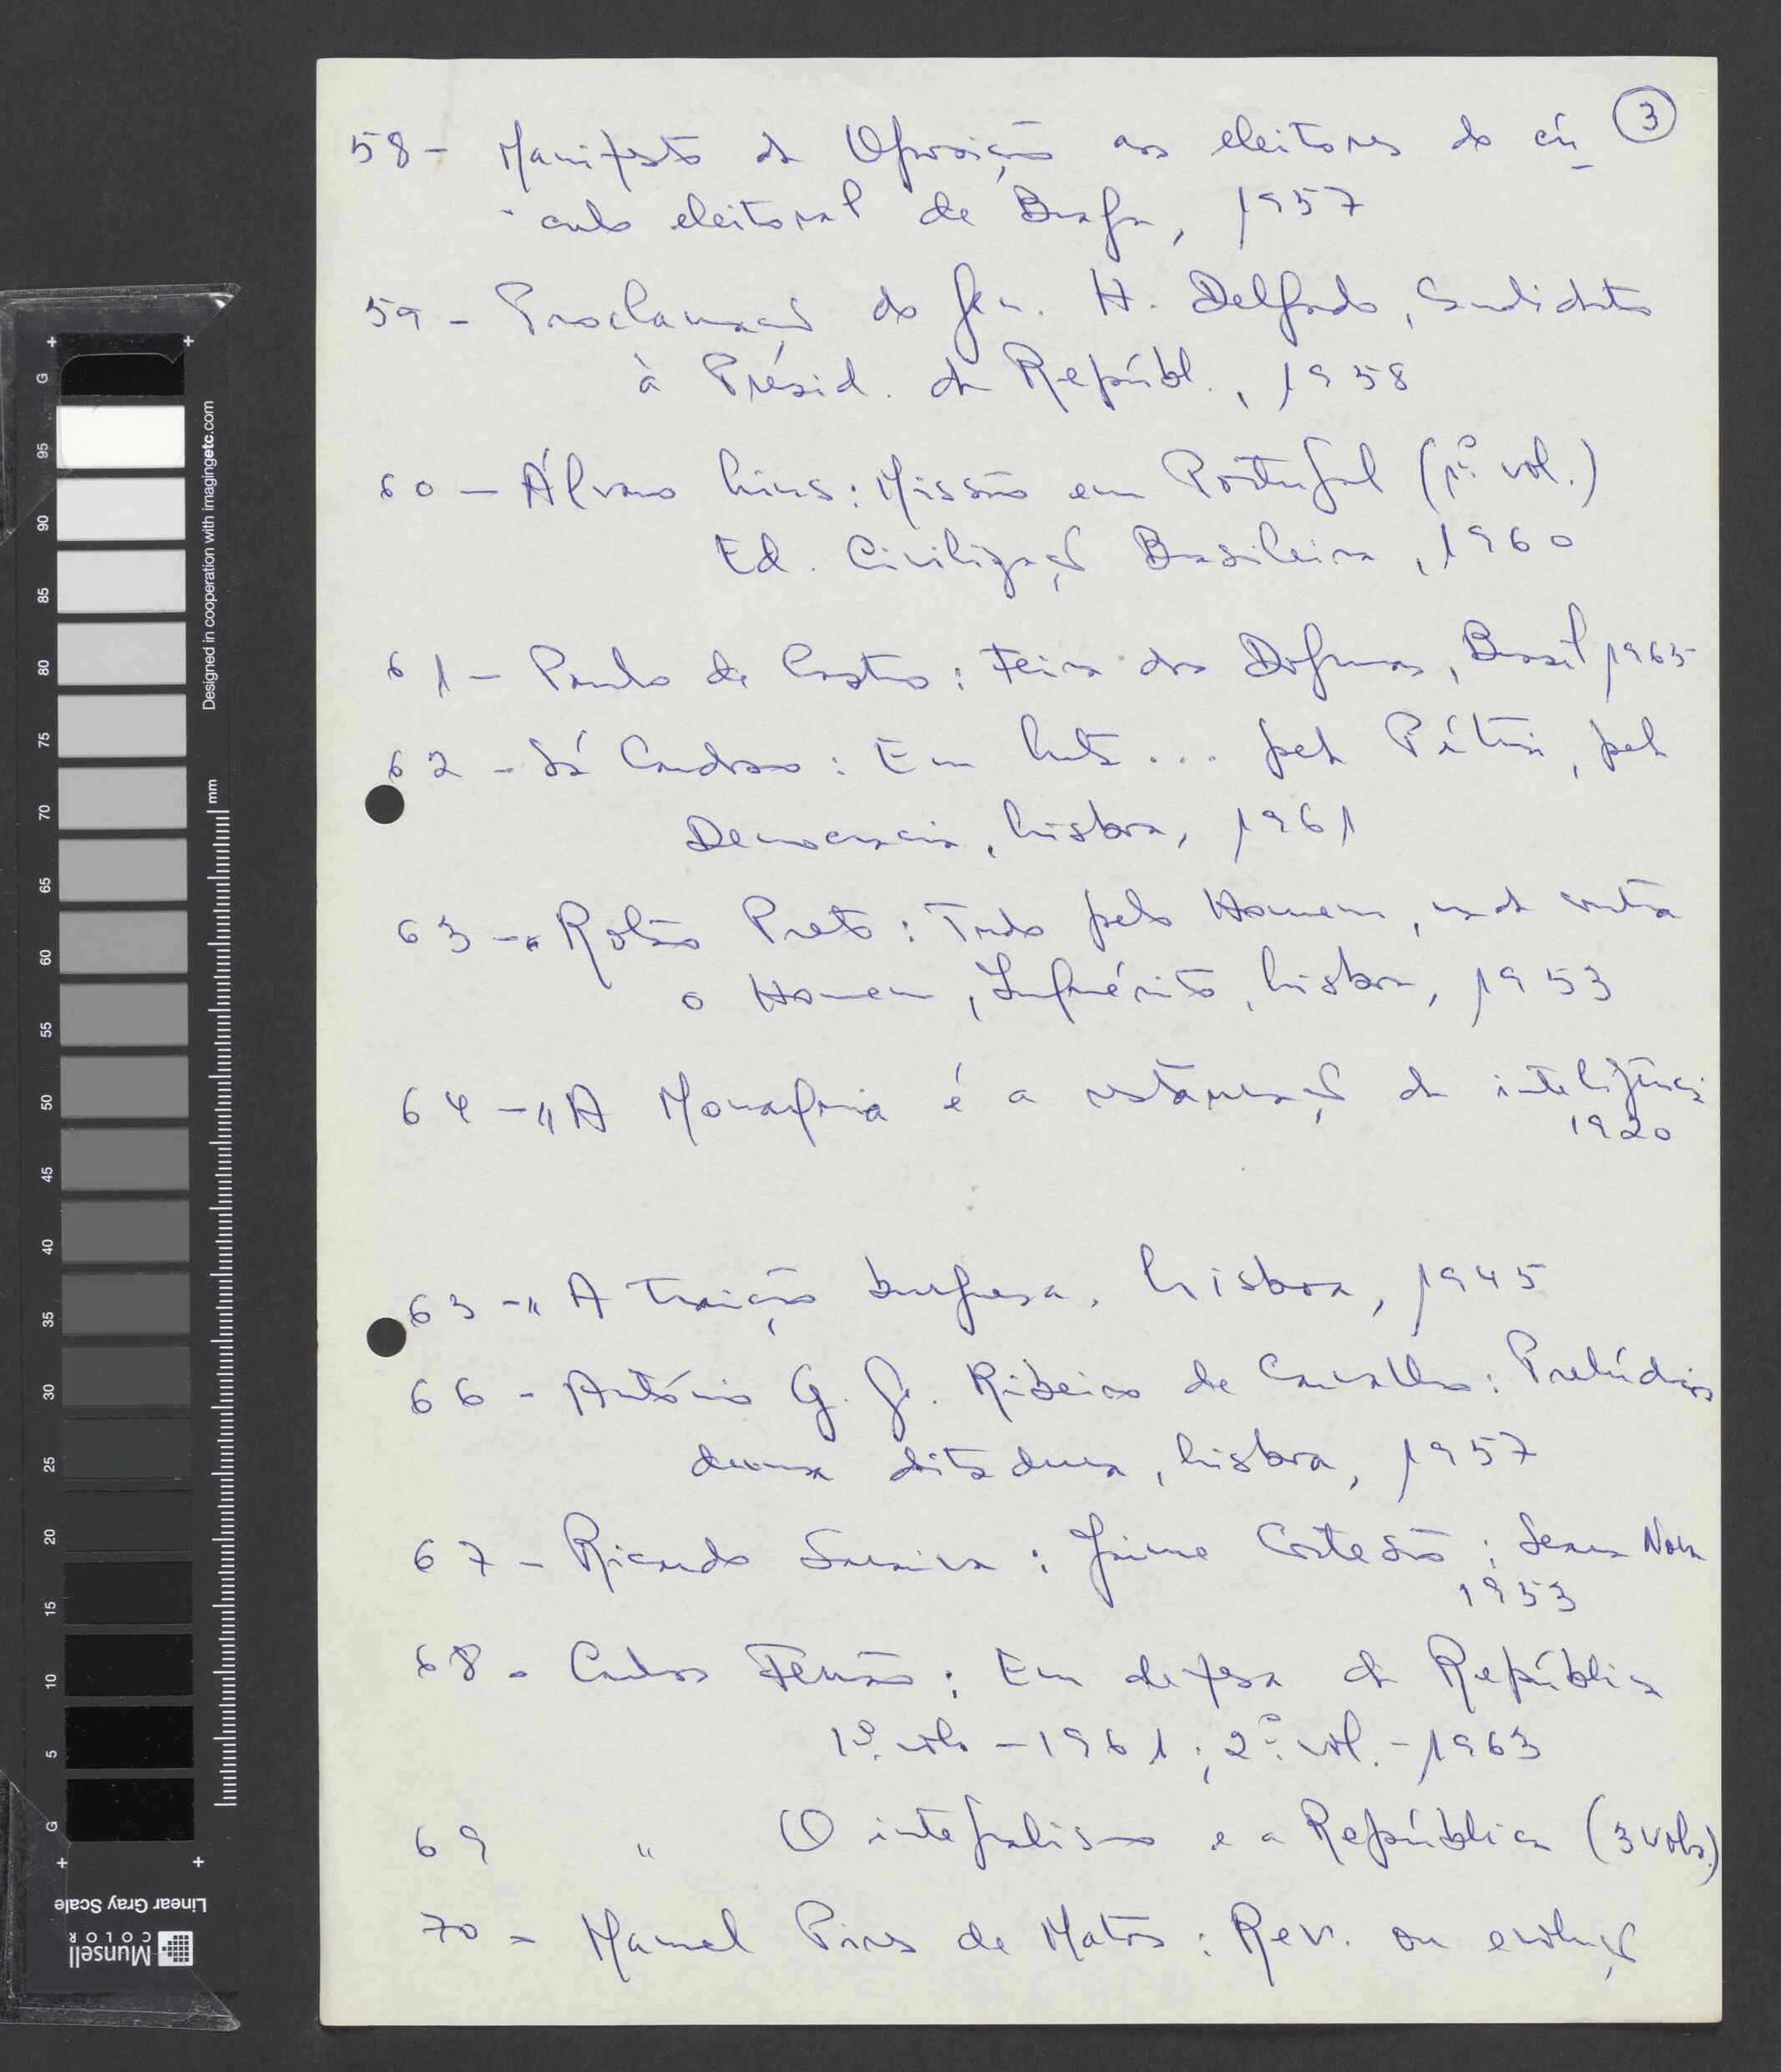 3
58 - Manifesto da Oposição aos eleitores do cír
culo eleitoral de Braga, 1957
59 - Proclamação do Gen. H. Delgado, Candidato
à Presid. da Repúbl., 1958
60 - Álvaro Lins: Missão em Portugal (1º vol.)
Ed. Civilização Brasileira, 1960
61 - Paulo de Castro: Feira dos Dogmas, Brasil 1965
62 - Sá Cardoso: Em luta ... pela Pátria, pela
Democracia, Lisboa, 1961
63 - " Rolão Preto: Tudo pelo Homem, nada contra
o Homem, Inquérito, Lisboa, 1953
64 - " A Monarquia é a restauração da inteligência
1920
65 - " A Traição burguesa, Lisboa, 1945
66 - António G. G. Ribeiro de Carvalho: Prelúdios
duma ditadura, Lisboa, 1957
67 - Ricardo Saraiva: Jaime Cortesão: Seara Nova
1953
68 - Carlos Ferrão: Em defesa da República
1º vol. - 1961; 2º vol. - 1963
69 " O integralismo e a República (3 vols.)
70 - Manuel Pires de Matos: Rev. ou evolução
Designed in cooperation with imagingetc.com
mm
G 95 90 85 80 75 70 65 60 55 50 45 40 35 30 25 20 15 10 5 G
Linear Gray Scale
Munsell
COLOR